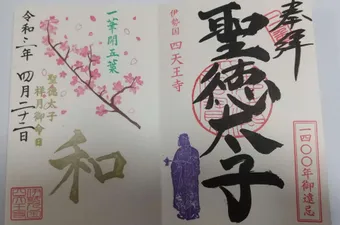 奉拝
一四〇〇年御遠忌
聖徳太子
伊勢国 四天王寺
一華開五葉
和
聖徳太子
祥月御命日
令和三年 四月二十二日